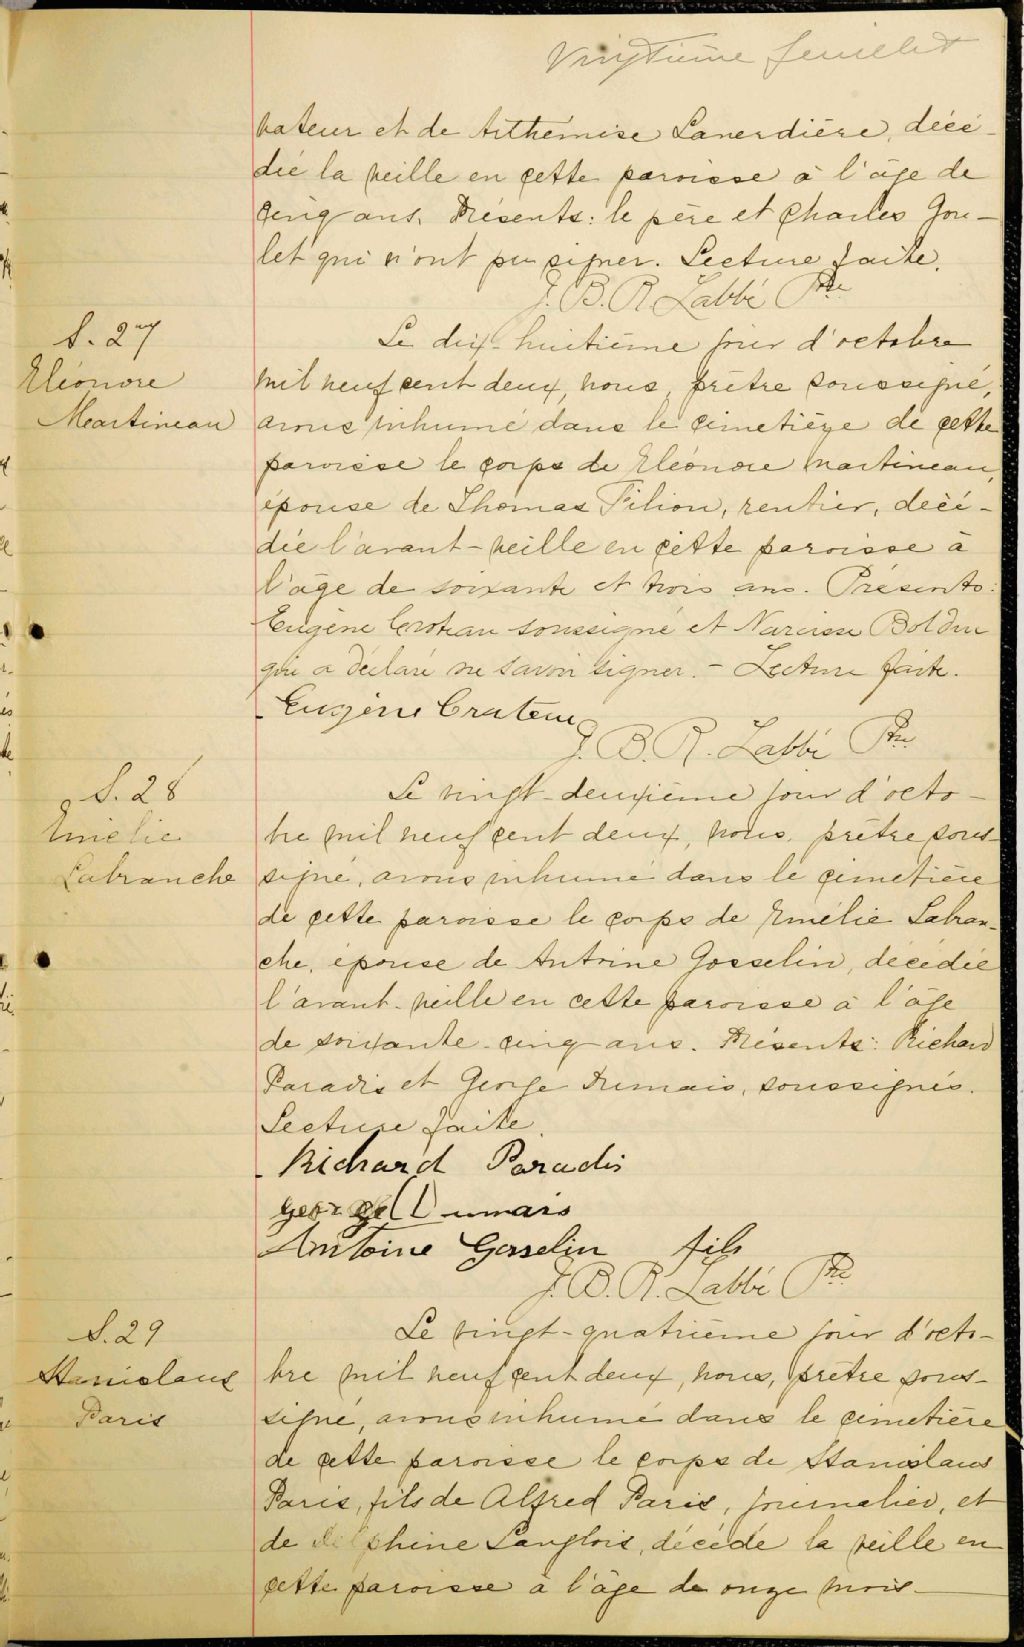 Vingtième feuillet
vateur et de Arthémise Laverdière, décé-
dée la veille en cette paroisse à l'âge de
cinq ans. Présents: le père et Charles Gou-
let qui n'ont pu signer. Lecture faite.
J. B. R. Labbé Ptre
S. 27
Eléonore
Martineau
Le dix-huitième jour d'octobre
mil neuf cent deux, nous, prêtre soussigné,
avons inhumé dans le cimetière de cette
paroisse le corps de Eléonore Martineau,
épouse de Thomas Filion, rentier, décé-
dée l'avant-veille en cette paroisse à
l'âge de soixante et trois ans. Présents:
Eugène Croteau soussigné et Narcisse Bolduc
qui a déclaré ne savoir signer. - Lecture faite.
Eugène Croteau
J. B. R. Labbé Ptre
S. 28
Emélie
Labranche
Le vingt-deuxième jour d'octo-
bre mil neuf cent deux, nous, prêtre sous-
signé, avons inhumé dans le cimetière
de cette paroisse le corps de Emélie Labran-
che, épouse de Antoine Gosselin, décédée
l'avant-veille en cette paroisse à l'âge
de soixante-cinq ans. Présents: Richard
Paradis et George Dumais, soussignés.
Lecture faite.
Richard Paradis
George Dumais
Antoine Gosselin fils
J. B. R. Labbé Ptre
S. 29
Stanislaus
Paris
Le vingt-quatrième jour d'octo-
bre mil neuf cent deux, nous, prêtre sous-
signé, avons inhumé dans le cimetière
de cette paroisse le corps de Stanislaus
Paris, fils de Alfred Paris, journalier, et
de Delphine Langlois, décédé la veille en
cette paroisse à l'âge de onze mois.